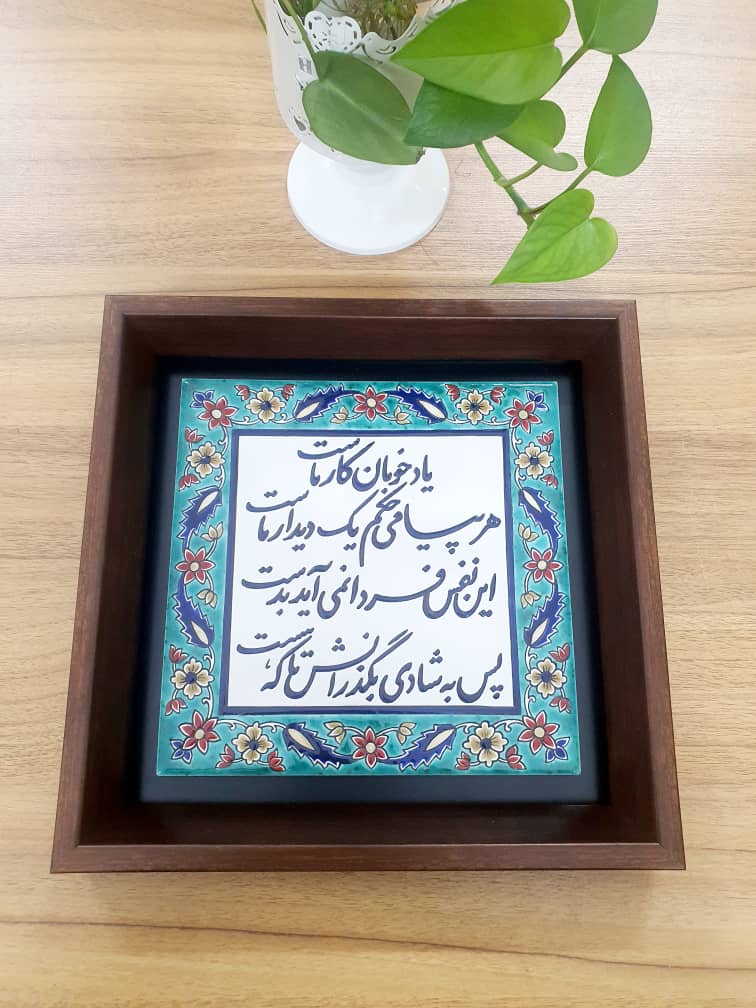 یاد خوبان کار ماست
هر پیامی حکم یک دیدار ماست
این نفس فردا نمی آید بدست
پس به شادی بگذرانش تا که هست